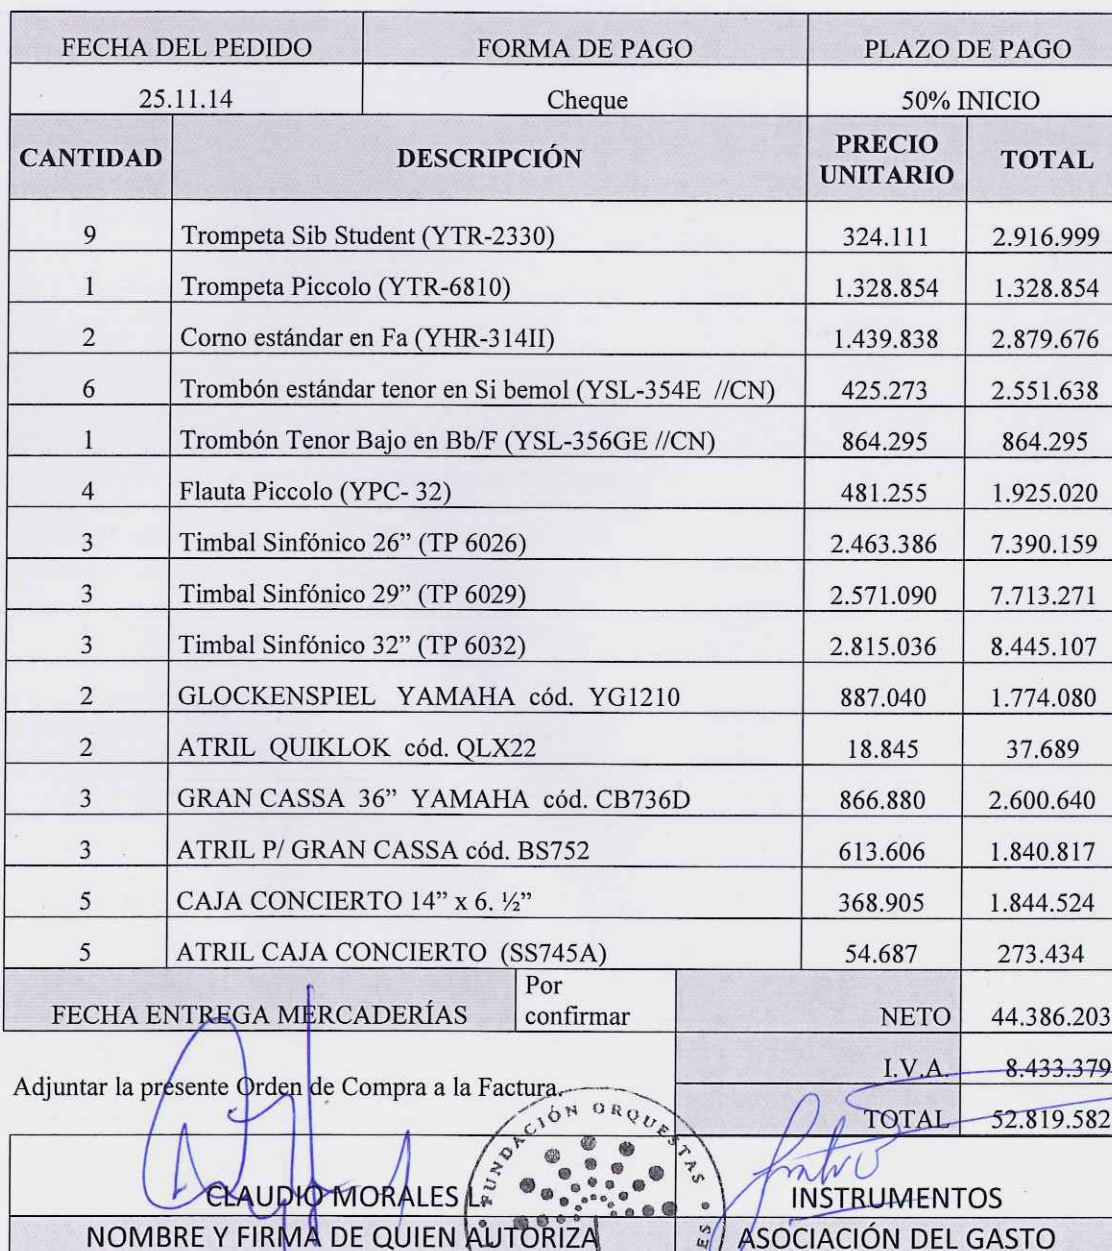 FECHA DEL PEDIDO FORMA DE PAGO PLAZO DE PAGO
25.11.14 Cheque 50% INICIO
CANTIDAD DESCRIPCIÓN PRECIO UNITARIO TOTAL
9 Trompeta Sib Student (YTR-2330) 324.111 2.916.999
1 Trompeta Piccolo (YTR-6810) 1.328.854 1.328.854
2 Corno estándar en Fa (YHR-314II) 1.439.838 2.879.676
6 Trombón estándar tenor en Si bemol (YSL-354E //CN) 425.273 2.551.638
1 Trombón Tenor Bajo en Bb/F (YSL-356GE //CN) 864.295 864.295
4 Flauta Piccolo (YPC- 32) 481.255 1.925.020
3 Timbal Sinfónico 26” (TP 6026) 2.463.386 7.390.159
3 Timbal Sinfónico 29” (TP 6029) 2.571.090 7.713.271
3 Timbal Sinfónico 32” (TP 6032) 2.815.036 8.445.107
2 GLOCKENSPIEL YAMAHA cód. YG1210 887.040 1.774.080
2 ATRIL QUIKLOK cód. QLX22 18.845 37.689
3 GRAN CASSA 36” YAMAHA cód. CB736D 866.880 2.600.640
3 ATRIL P/ GRAN CASSA cód. BS752 613.606 1.840.817
5 CAJA CONCIERTO 14” x 6. ½” 368.905 1.844.524
5 ATRIL CAJA CONCIERTO (SS745A) 54.687 273.434
FECHA ENTREGA MERCADERÍAS Por confirmar NETO 44.386.203
I.V.A. 8.433.379
Adjuntar la presente Orden de Compra a la Factura.
TOTAL 52.819.582
FUNDACIÓN ORQUESTAS
CLAUDIO MORALES L. INSTRUMENTOS
NOMBRE Y FIRMA DE QUIEN AUTORIZA ASOCIACIÓN DEL GASTO